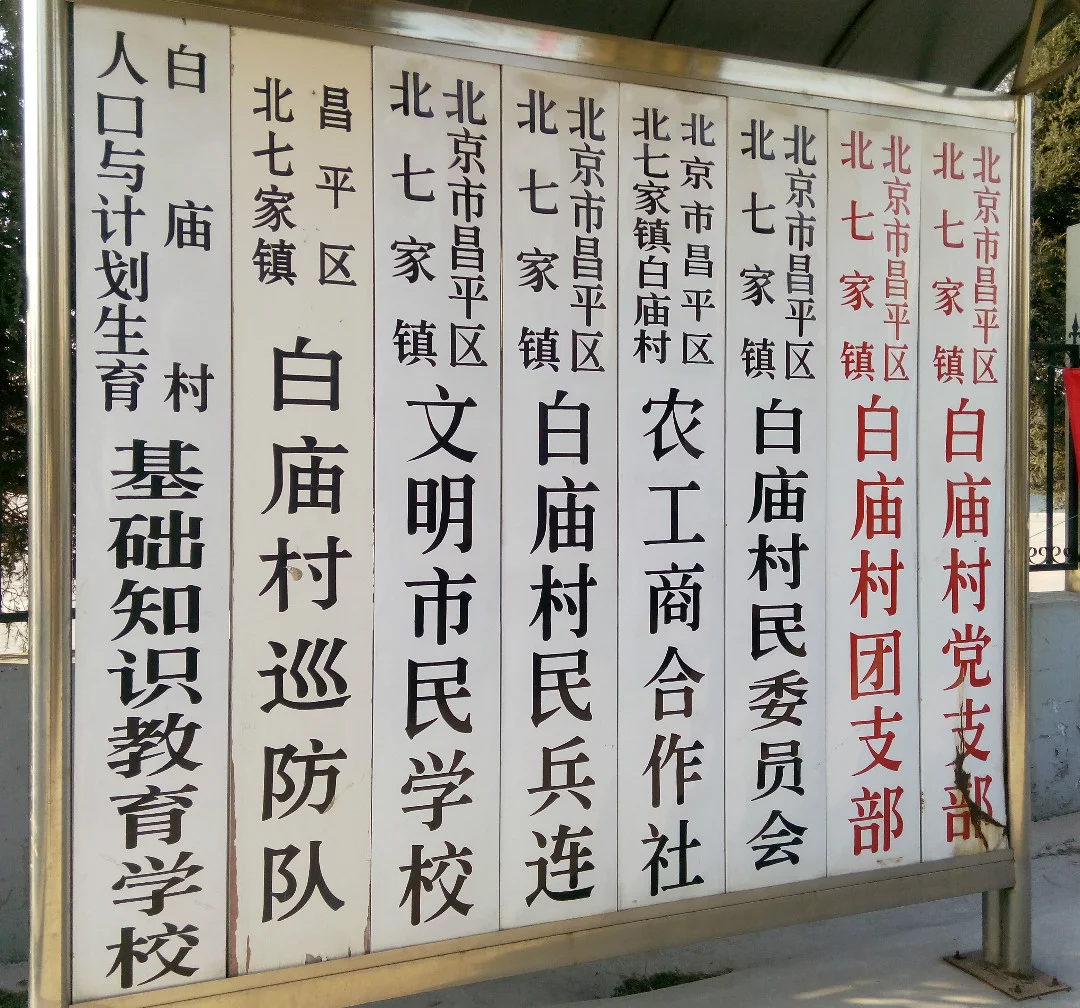 北京市昌平区
北七家镇
白庙村党支部
北京市昌平区
北七家镇
白庙村团支部
北京市昌平区
北七家镇
白庙村民委员会
北京市昌平区
北七家镇白庙村
农工商合作社
北京市昌平区
北七家镇
白庙村民兵连
北京市昌平区
北七家镇
文明市民学校
昌平区
北七家镇
白庙村巡防队
白庙村
人口与计划生育
基础知识教育学校